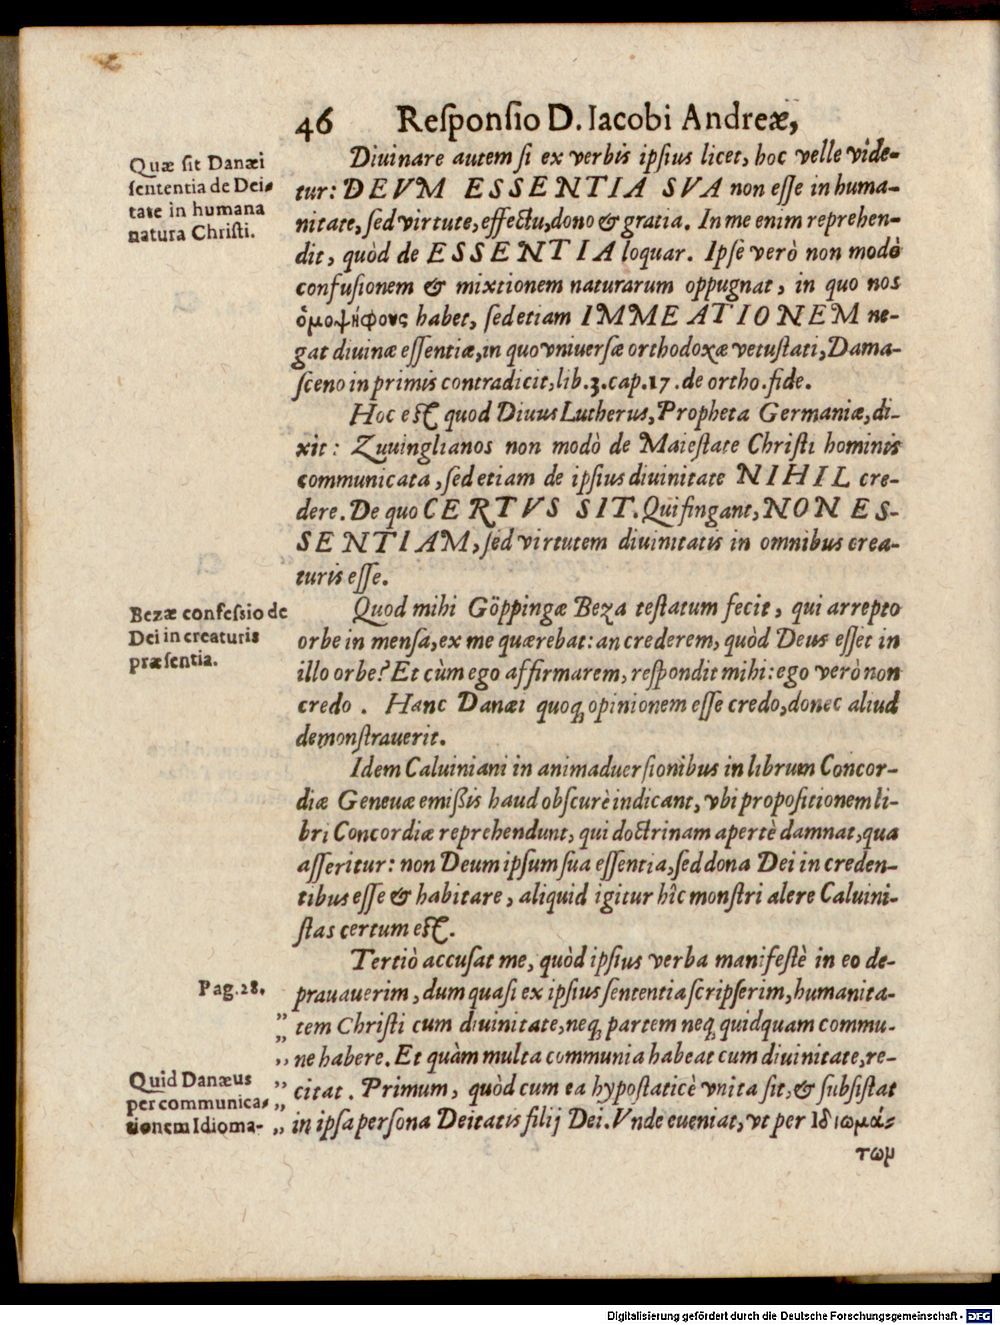 46 Reſponſio D. Iacobi Andreæ,
Quæ ſit Danæi
ſententia de Dei-
tate in humana
natura Chriſti.
Diuinare autem ſi ex verbis ipſius licet, hoc velle vide-
tur: DEVM ESSENTIA SVA non eſſe in huma-
nitate, ſed virtute, effectu, dono & gratia. In me enim reprehen-
dit, quòd de ESSENTIA loquar. Ipſe verò non modò
confuſionem & mixtionem naturarum oppugnat, in quo nos
ὁμοψήφους habet, ſed etiam IMMEATIONEM ne-
gat diuinæ eſſentiæ, in quo vniuerſæ orthodoxæ vetuſtati, Dama-
ſceno in primis contradicit, lib. 3. cap. 17. de ortho. fide.
Hoc eſt quod Diuus Lutherus, Propheta Germaniæ, di-
xit: Zuuinglianos non modò de Maieſtate Chriſti hominis
communicata, ſed etiam de ipſius diuinitate NIHIL cre-
dere. De quo CERTVS SIT. Qui fingant, NON ES-
SENTIAM, ſed virtutem diuinitatis in omnibus crea-
turis eſſe.
Bezæ confeſsio de
Dei in creaturis
præſentia.
Quod mihi Göppingæ Beza teſtatum fecit, qui arrepto
orbe in menſa, ex me quærebat: an crederem, quòd Deus eſſet in
illo orbe? Et cùm ego affirmarem, reſpondit mihi: ego verò non
credo. Hanc Danæi quoq; opinionem eſſe credo, donec aliud
demonſtrauerit.
Idem Caluiniani in animaduerſionibus in librum Concor-
diæ Geneuæ emiſsis haud obſcurè indicant, vbi propoſitionem li-
bri Concordiæ reprehendunt, qui doctrinam apertè damnat, qua
aſſeritur: non Deum ipſum ſua eſſentia, ſed dona Dei in creden-
tibus eſſe & habitare, aliquid igitur hîc monſtri alere Caluini-
ſtas certum eſt.
Tertiò accuſat me, quòd ipſius verba manifeſtè in eo de-
Pag. 28. prauauerim, dum quaſi ex ipſius ſententia ſcripſerim, humanita-
„ tem Chriſti cum diuinitate, neq; partem neq; quidquam commu-
„ ne habere. Et quàm multa communia habeat cum diuinitate, re-
Quid Danæus
per communica-
tionem Idioma-
„ citat. Primum, quòd cum ea hypoſtaticè vnita ſit, & ſubſiſtat
„ in ipſa perſona Deitatis filij Dei. Vnde eueniat, vt per ἰδιωμά-
τωμ
Digitalisierung gefördert durch die Deutsche Forschungsgemeinschaft - DFG